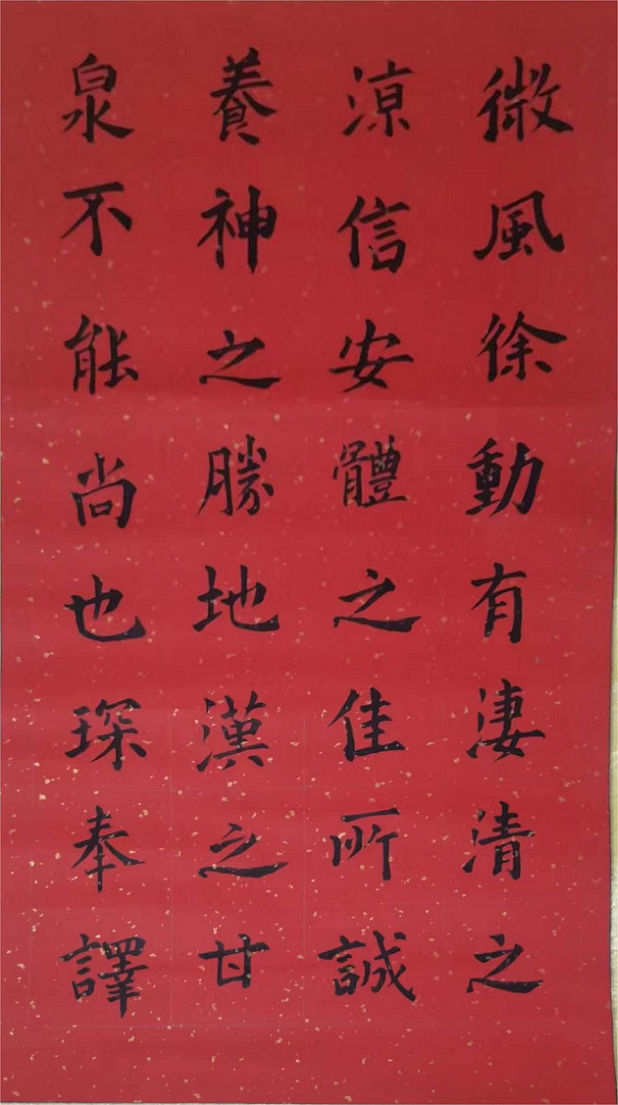 微風徐動有淒清之
涼信安體之佳所誠
養神之勝地漢之甘
泉不能尚也琛奉譯